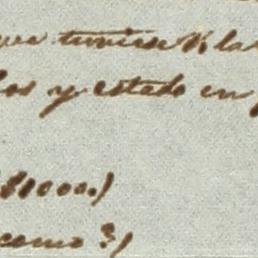 que tuviese la
los y estado en
$1000.)
como ?)